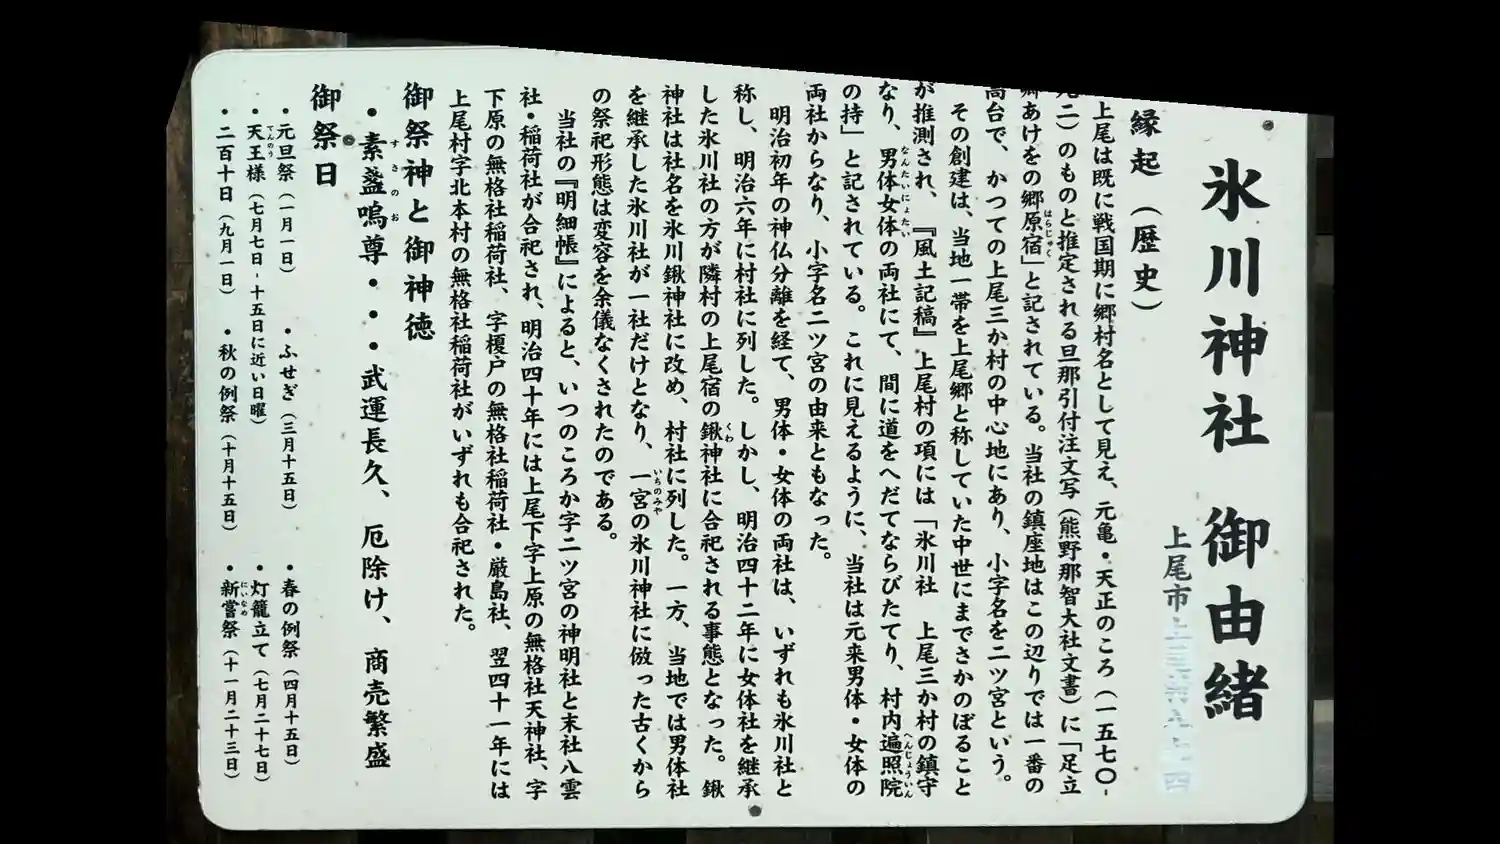 氷川神社 御由緒
上尾市上
縁起（歴史）
上尾は既に戦国期に郷村名として見え、元亀・天正のころ（一五七〇-
九二）のものと推定される旦那引付注文写（熊野那智大社文書）に「足立
郷あけをの郷原宿」と記されている。当社の鎮座地はこの辺りでは一番の
高台で、かつての上尾三か村の中心地にあり、小字名を二ツ宮という。
その創建は、当地一帯を上尾郷と称していた中世にまでさかのぼること
が推測され、『風土記稿』上尾村の項には「氷川社 上尾三か村の鎮守
なり、男体女体の両社にて、間に道をへだてならびたてり、村内遍照院
の持」と記されている。これに見えるように、当社は元来男体・女体の
両社からなり、小字名二ツ宮の由来ともなった。
明治初年の神仏分離を経て、男体・女体の両社は、いずれも氷川社と
称し、明治六年に村社に列した。しかし、明治四十二年に女体社を継承
した氷川社の方が隣村の上尾宿の鍬神社に合祀される事態となった。鍬
神社は社名を氷川鍬神社に改め、村社に列した。一方、当地では男体社
を継承した氷川社が一社だけとなり、一宮の氷川神社に倣った古くから
の祭祀形態は変容を余儀なくされたのである。
当社の『明細帳』によると、いつのころか字二ツ宮の神明社と末社八雲
社・稲荷社が合祀され、明治四十年には上尾下字上原の無格社天神社、字
下原の無格社稲荷社、字榎戸の無格社稲荷社・厳島社、翌四十一年には
上尾村字北本村の無格社稲荷社がいずれも合祀された。
御祭神と御神徳
・素盞嗚尊・・・武運長久、厄除け、商売繁盛
御祭日
・元旦祭（一月一日） ・ふせぎ（三月十五日） ・春の例祭（四月十五日）
・天王様（七月七日-十五日に近い日曜） ・灯籠立て（七月二十七日）
・二百十日（九月一日） ・秋の例祭（十月十五日） ・新嘗祭（十一月二十三日）